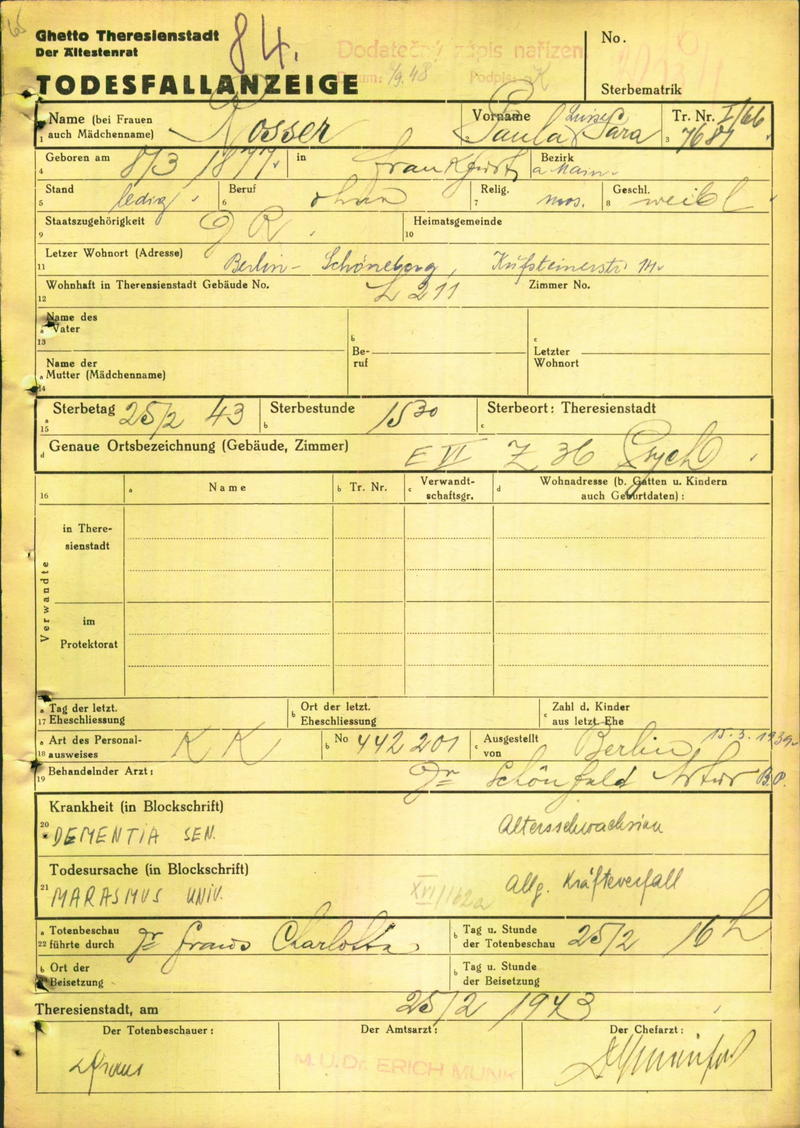 65
Ghetto Theresienstadt
Der Ältestenrat
84.
Dodatečný zápis nařízen
Datum: 1/9. 48 Podpis:
No.
TODESFALLANZEIGE
Sterbematrik
Name (bei Frauen auch Mädchenname) Rosser
Vorname Paula Luise Sara
Tr. Nr. I/66
1
3 7687
4 Geboren am 8/3 1877. in Frankfurt Bezirk a Main.
5 Stand ledig. 6 Beruf ohne 7 Relig. mos. 8 Geschl. weibl
9 Staatszugehörigkeit D R. 10 Heimatsgemeinde
11 Letzer Wohnort (Adresse) Berlin - Schöneberg, Kufsteinerstr. 14.
12 Wohnhaft in Theresienstadt Gebäude No. L 211 Zimmer No.
13 a Name des Vater b Beruf c Letzter Wohnort
14 a Name der Mutter (Mädchenname)
15 a Sterbetag 25/2 43 b Sterbestunde 15 30 c Sterbeort: Theresienstadt
d Genaue Ortsbezeichnung (Gebäude, Zimmer) E VI Z 36 Psych.
16 a Name b Tr. Nr. c Verwandtschaftsgr. d Wohnadresse (b. Gatten u. Kindern auch Geburtdaten):
Verwandte
in Theresienstadt
im Protektorat
17 a Tag der letzt. Eheschliessung b Ort der letzt. Eheschliessung c Zahl d. Kinder aus letzt. Ehe
18 a Art des Personalausweises K K b No 442201 c Ausgestellt von Berlin 15.3.1939.
19 Behandelnder Arzt: Dr Schönfeld Artur
Krankheit (in Blockschrift)
20 DEMENTIA SEN. Altersschwachsinn
Todesursache (in Blockschrift)
21 MARASMUS UNIV. XVI/162a Allg. Kräfteverfall
22 a Totenbeschau führte durch Dr Graus Charlotta b Tag u. Stunde der Totenbeschau 25/2 16 h
b Ort der Beisetzung b Tag u. Stunde der Beisetzung
Theresienstadt, am 25/2 1943
Der Totenbeschauer: Der Amtsarzt: Der Chefarzt:
M. U. Dr. ERICH MUNK